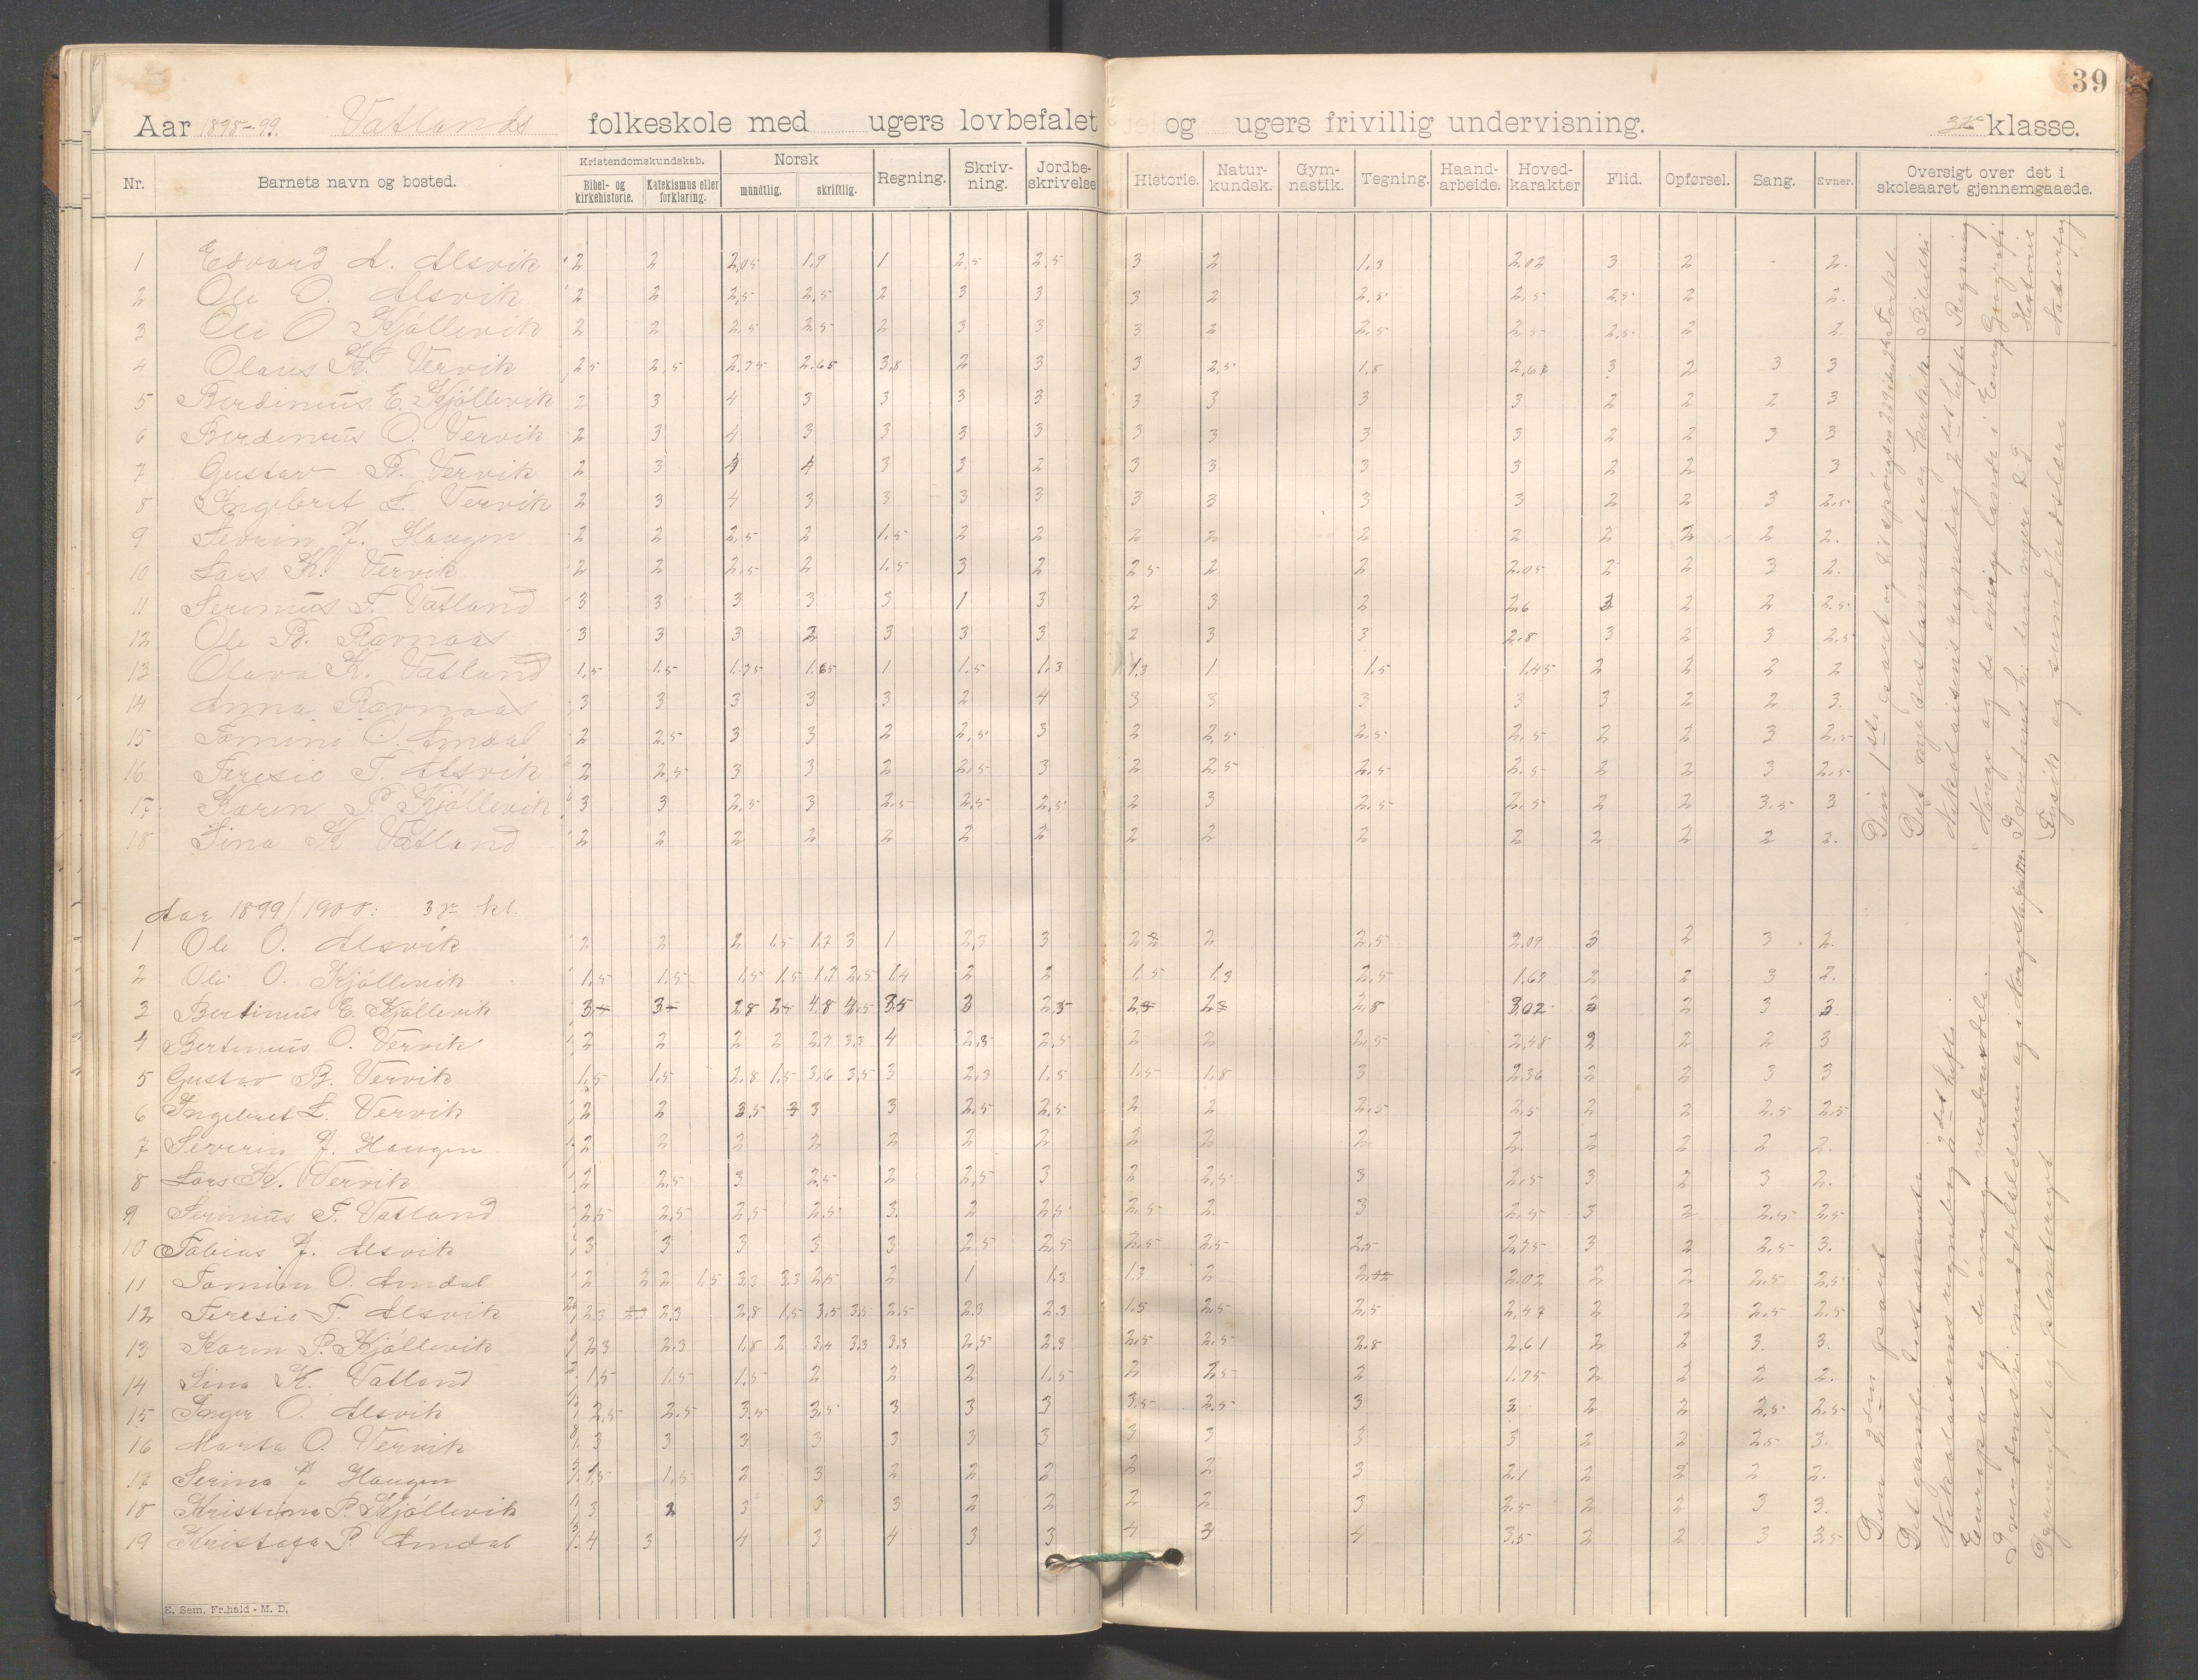 39
Aar 1898-99. Vatlands folkeskole med ugers lovbefalet og ugers frivillig undervisning. klasse.
Nr. Barnets navn og bosted. Kristendomskundskab. Bibel- og kirkehistorie. Katekismus eller forklaring. Norsk mundtlig. skriftlig. Regning. Skriv-ning. Jordbe-skrivelse Historie. Natur-kundsk. Gym-nastik. Tegning. Haand-arbeide. Hoved-karakter Flid. Opførsel. Sang. Evner. Oversigt over det i skoleaaret gjennemgaaede.
1 Edvard A. Alsvik 2 2 2,05 1.9 1 2,5 2,5 3 2 1,3 2.02 3 2 - 2.
2 Ole O. Alsvik 2 2 2,5 2,5 2 3 3 3 2 2,5 2,5 2,5 2 2.
3 Ole O Kjóllevik 2 2 2,5 2,5 2 3 3 3 2 2,5 2,5 2,5 2 2.
4 Olaus K. Vervik 2,5 2,5 2,75 2,65 3,8 2 3 3 2,5 1,8 2,67 3 2 3 3
5 Berdinius E. Kjóllevik 2 3 4 3 3 3 3 3 3 3 3 2 2 2 3
6 Berdinius O. Vervik 2 3 4 3 3 3 3 3 3 3 3 2 2 3 3
7 Gustav B. Vervik 2 3 4 4 3 3 2 3 3 3 3 2 2 3
8 Ingebret L. Vervik 2 3 4 3 3 3 3 3 3 3 3 2 2 3 2,5
9 Severin J. Haugen 2 2 2,5 2 1,5 2 2 2 2 2 2 2 2 2 2.
10 Lars K. Vervik 2 2 2,5 2 1,5 3 2 2 5 2 2 2.05 2 2 3 2.
11 Serinius T. Vatland 3 3 3 3 3 1 3 2 3 2 2.6 3 2 2 2.5
12 Ole B. Ravnaas 3 3 3 2 3 3 3 2 3 3 2.8 3 2 3 2,5
13 Olava K. Vatland 1,5 1,5 1.75 1.65 1 1,5 1,3 1,3 1 1,5 1,45 2 2 2 2
14 Anna Ravnaas 3 3 3 3 3 2 4 3 3 3 3 3 2 2 3.
15 Tomine O. Amdal 2 2,5 3 3 2 2,5 3 2 2,5 2,5 2,5 2 2 3 2,5
16 Teresie T. Alsvik 2 2,5 3 3 2 2,5 3 2 2,5 2,5 2,5 2 2 3 2,5
17 Karen P. Kjóllevik 3 3 2,5 3 2,5 2,5 2,5 2 3 2,5 2,5 2 2 3,5 3
18 Sina K Vatland 2 2 2 2 2 2 2 2 2 2 2 2 2 2 2.
Aar 1899/1900: 3 kl.
1 Ole O. Alsvik 2 2 2 1,5 1,7 3 1 2,3 3 2 2 2 2,5 2.09 3 2 3 2.
2 Ole O. Kjóllevik 1,5 1,5 1,5 1,5 1,7 2,5 1,4 2 2 1,5 1,3 2,5 1.67 2 2 3 2.
3 Bertinius E. Kjóllevik
4 Bertinius O. Vervik 2 2 2 2 2,7 3,3 4 2,3 2,5 2 2 2,5 2,48 2 2 2 3
5 Gustav B. Vervik 1,5 1,5 2,8 1,5 3,6 3,5 3 2,3 1,5 1,5 1,8 3 2,36 2 2 3 3
6 Ingebret L. Vervik 2 2 3 3 2,5 2,5 2 2 2,5 2,5 2 2 2,5 2,5
7 Severin J. Haugen 2 2 2 2 2 2 2 2 2 2 2. 2 2 2 2.
8 Lars K. Vervik 2 2,5 3 2,5 2 2,5 3 2 2,5 3 2,5 3 2 3 2.
9 Serinius T. Vatland 2,5 2,5 2,5 2,5 3. 2 2,5 2,5 2 3 2,5 3 2 2,5 2,5
10 Tobias J. Alsvik 3 3 3 3 3 2,5 2,5 2,5 2,5 2,5 2,75 3 2 2,5 3.
11 Tomine O. Amdal 2 2 2 1,5 3,3 3,3 2,5 2 1 1,3 1.3 2 2.02 2 2 2,5 2,5
12 Teresie T. Alsvik 2,3 2,3 2,8 1,5 3,5 3,5 2,5 2.3 2.3 1.5 2,5 2,5 2,47 2 2 2,5 2,5
13 Karen P. Kjóllevik 2 3 2,3 1,8 2 3,4 3,3 3,3 2,5 2,3 2,5 2,5 2,8 2,61 2 2 3. 3.
14 Sina K. Vatland 1,5 1,5 1,5 2 2 2 1,5 2 2,5 2 1.75 2 2 2 2.
15 Inger O. Alsvik 2,5 2,5 3,5 3,5 3 3 3 3,5 2,5 3 3 2 2 2,5 2,5
16 Marta O. Vervik 3 3 3 3 3 3 3 3 3 3 3 2 2 2,5 3.
17 Serina J Haugen 1,5 1,5 2 3 2 2 2 2 2 3 2,1 2 2 2 2.
18 Kristina P. Kjóllevik 3 2 3 3 3 2 2 2 2 3 2,5 2 2 3 3.
19 Kristofa P. Amdal 4 3 4 3 4 3 3 4 3 4 3,5 2 2 3 3,5
Den 1ste part og til spórgsm 229 i Forkl.
Det nye testamente og kirkeh. Bibelhi
Nikolaisens regnebog 2det hefte Regning
Norge og de óvrige lande i Europa Geografi
Historie
Fysik og sundhedslære Naturfag
Den 2den part
Det gamle testamente
Nikolaisens regnebog 2det hefte
Europa og de óvrige verdensdele.
Dyreriget og planteriget
E. Sem. Fr.hald - M. D.